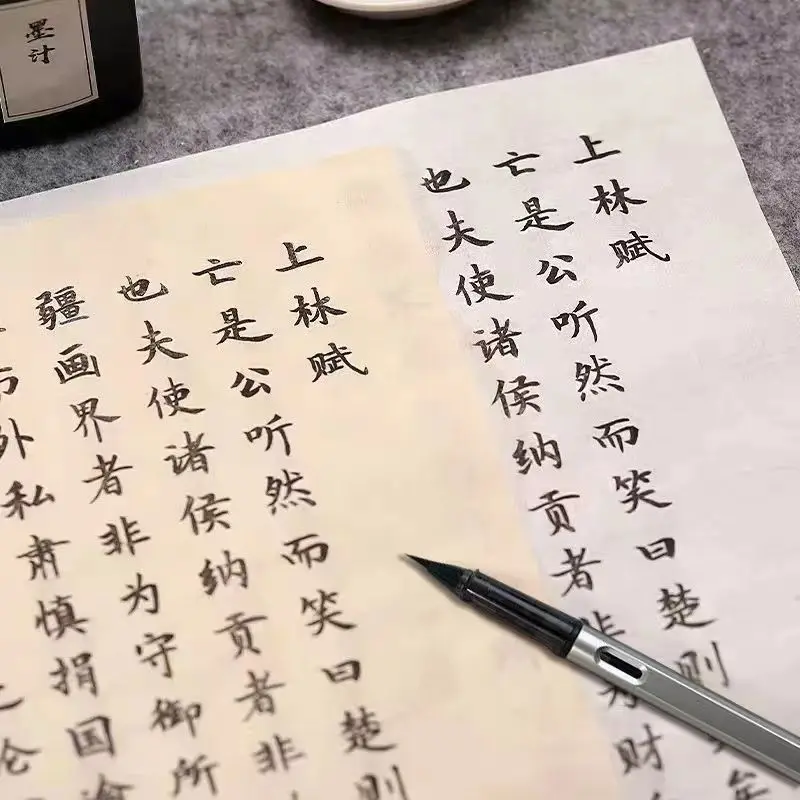 墨汁
上林赋
亡是公听然而笑曰楚则
也夫使诸侯纳贡者非为财
上林赋
亡是公听然而笑曰楚则
也夫使诸侯纳贡者非
疆画界者非为守御所
外私肃慎捐国逾